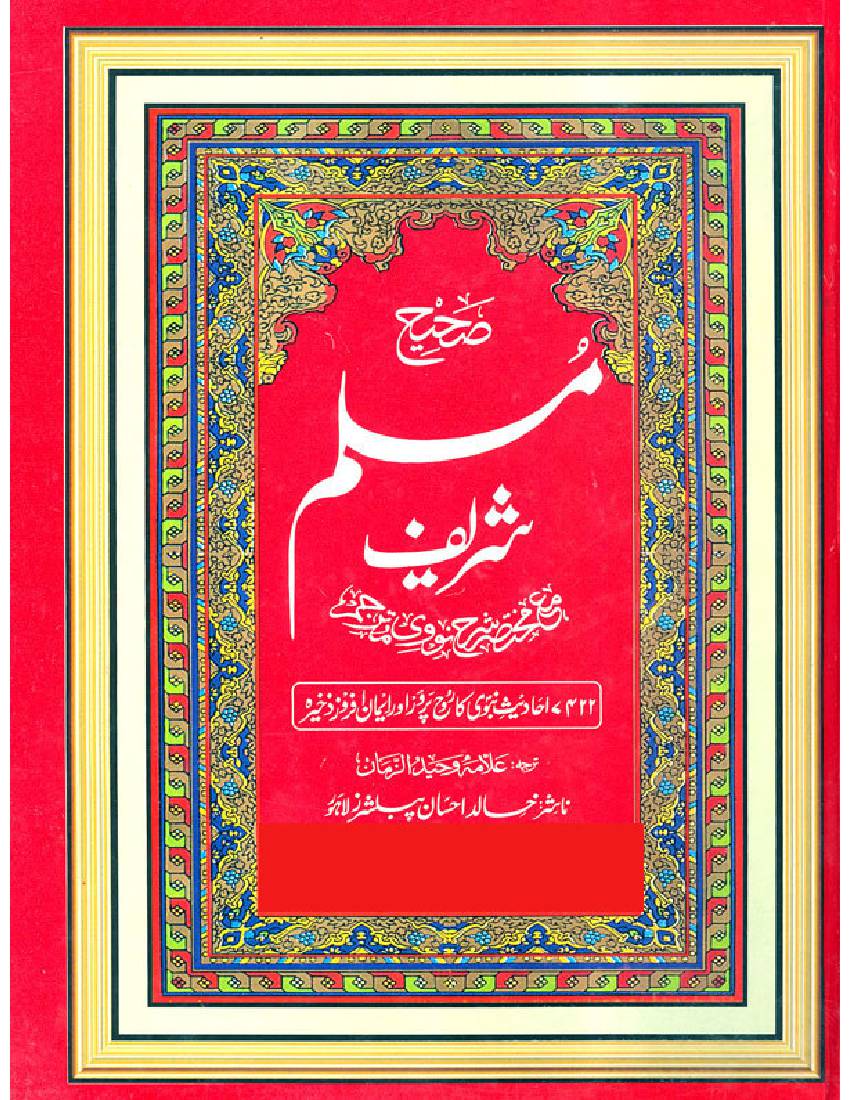 صحیح
مُسلم
شریف
مع مختصر شرح نووی مترجم
۷۴۲۲ احادیث نبوی کا روح پرور اور ایمان افروز ذخیرہ
ترجمہ: علامہ وحید الزمان
ناشر: خالد احسان پبلشرز لاہور